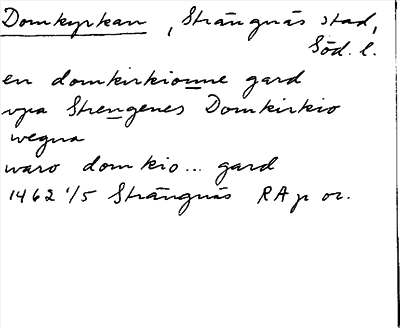 Domkyrkan, Strängnäs stad,
Söd. l.
en domkirkionne gard
vpa Strengenes Domkirkio
wegna
waro domkio... gard
1462 1/5 Strängnäs RAp or.